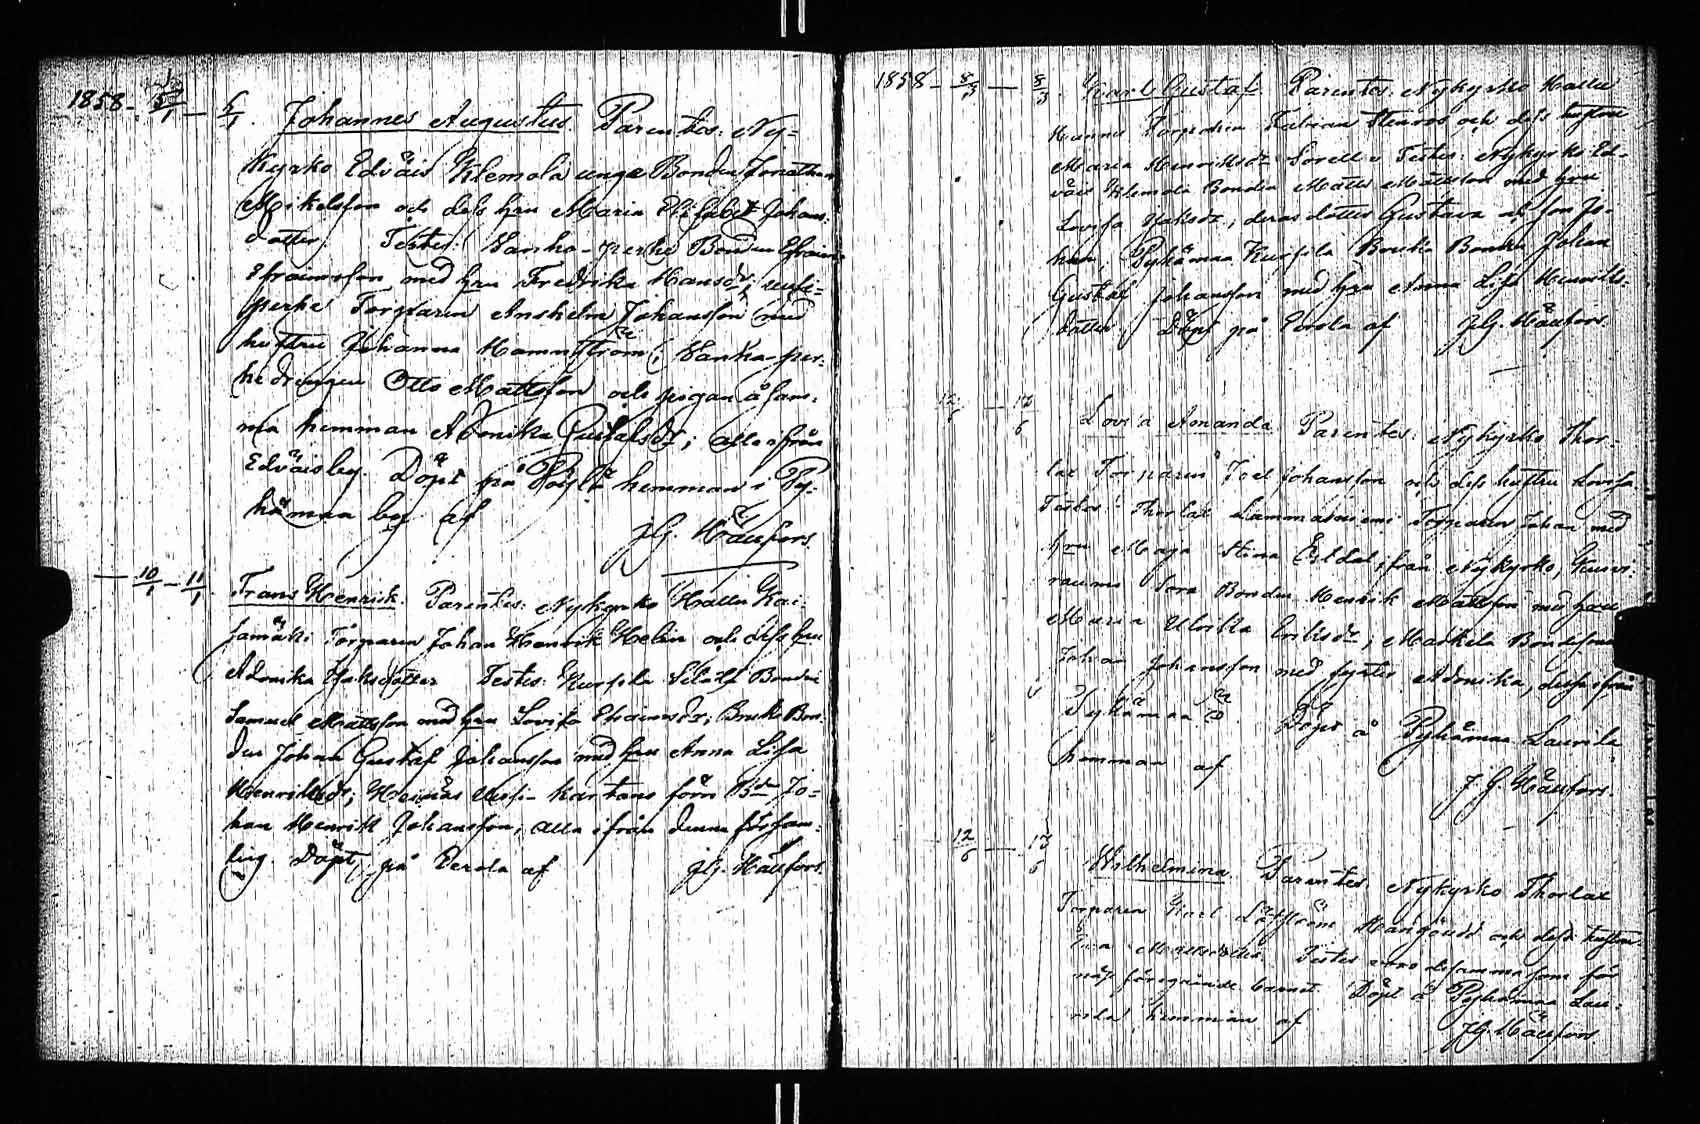 1858 - 5/1 - 6/1. Johannes Augustus. Parentes: Ny=
kyrko Edväis Klemola unge Bonden Jonathan
Mikelsson och dess hru Maria Elisabet Johans=
dotter. Testes: Vanha-perhe Bonden Efraim
Efraimsson med hru Fredrika Hansdr; uusi=
perhe Torparen Anshelm Johansson med
hustru Johanna Hammström; Vanha-per=
he drengen Otto Mattsson och pigan å sam=
ma hemman Adonika Gustafsdr; alla ifrån
Edväisby. Döpt på hemman i Py=
hämaa by af
J.G. Häufors.
— 10/1 - 11/1 Frans Henrik. Parentes: Nykyrko Hallu Kai=
jamäki Torparen Johan Henrik Helin och dess hru
Adonika Jaksdotter Testes: Kursila Bonden
Samuel Mattsson med hru Lovisa Efraimsdr; Bruka Bon=
den Johan Gustaf Johansson med hru Anna Lisa
Henriksdr; uusi-kartano förre Bdn Jo=
han Henrik Johansson, alla ifrån denna försam=
ling. Döpt på Eerola af J.G. Häufors.
1858 - 8/3 — 8/3. Karl Gustaf. Parentes: Nykyrko Hallu
Hannu Torparen Fabian och dess hustru
Maria Henriksdr Testes: Nykyrko Ed=
väis Klemola Bonden Matts Mattsson med hru
Lovisa Jaksdr; deras dotter Gustava och son Jo=
han, Pyhämaa Kursila Bruka Bonden Johan
Gustaf Johansson med hru Anna Lisa Henriks=
dotter. Döpt på Eerola af J.G. Häufors.
12/6 — 13/6 Lovisa Amanda. Parentes: Nykyrko Thor=
lax Torparen Joel Johansson och dess hustru Lovisa.
Testes: Thorlax Lammasniemi Torparen Johan med
hru Maja Stina ifrån Nykyrko,
Bonden Henrik Mattsson med hru
Maria Ulrika Eriksdr; Markela Bondeson
Johan Johansson med Adonika, desse ifrån
Pyhämaa Döpt å Pyhämaa Laurila
hemman af J.G. Häufors.
12/6 — 13/6 Wilhelmina. Parentes Nykyrko Thorlax
Torparen Karl och dess hustru
Mattsdotter. Testes voro desamma som för
näst föregående barnet. Döpt å Pyhämaa Lau=
rila hemman af J.G. Häufors